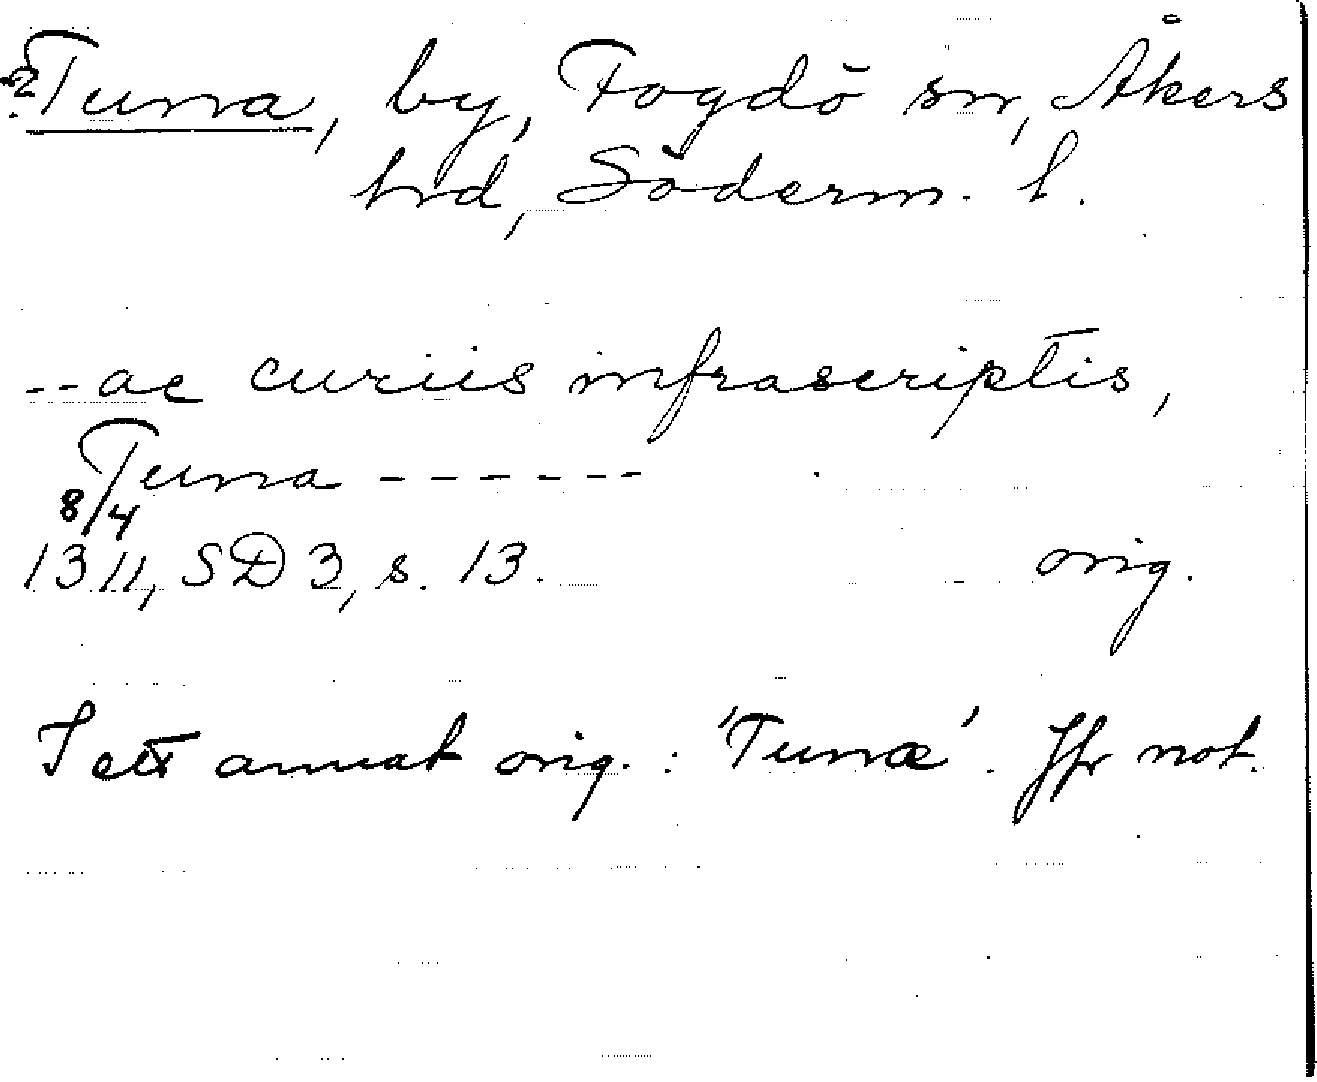 ?Tuna, by, Fogdö sn, Åkers
hrd, Söderm. l.
--ac curiis infrascriptis,
Tuna ------
8/4
1311, SD 3, s. 13. orig.
I ett annat orig.: 'Tunæ'. Jfr not.